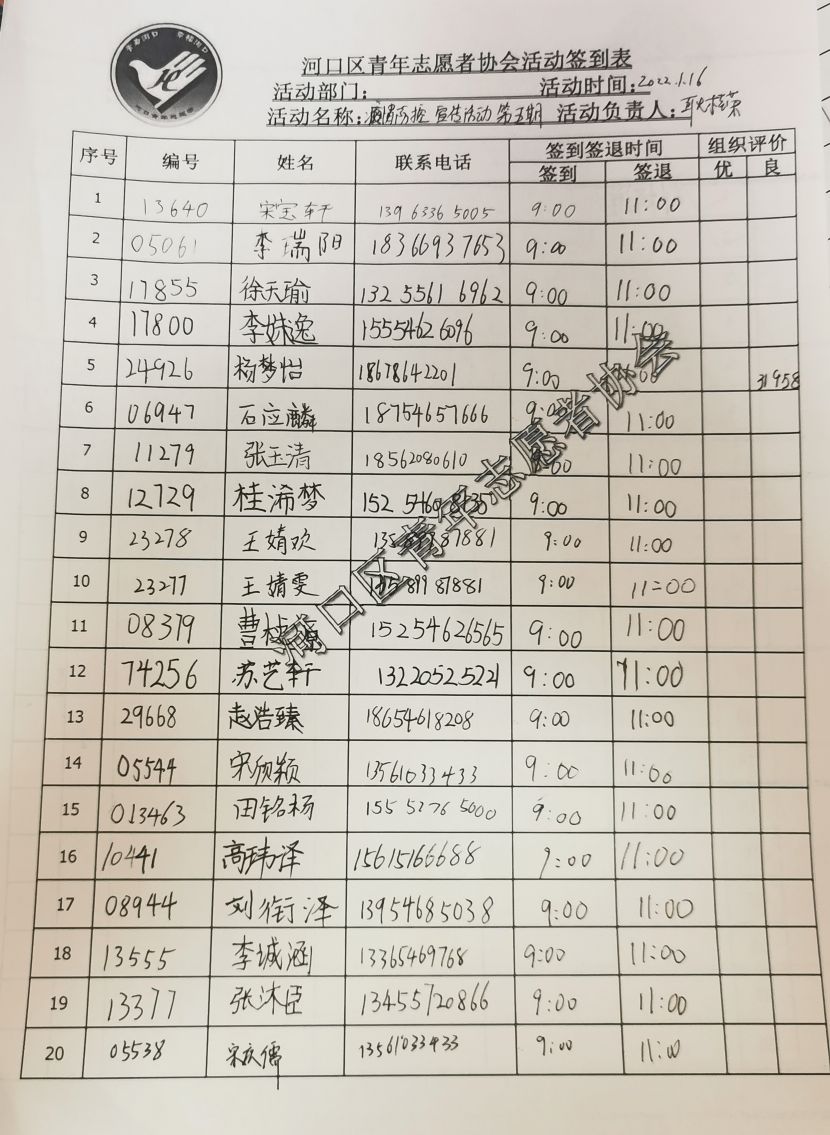 河口区青年志愿者协会活动签到表
活动部门: 活动时间:2022.1.16
活动名称: 宣传活动 第五期 活动负责人:耿桂荣
序号 编号 姓名 联系电话 签到签退时间 组织评价
签到 签退 优 良
1 13640 宋宝轩 139 6336 5005 9:00 11:00
2 05061 李瑞阳 18366937653 9:00 11:00
3 17855 徐天瑜 132 5561 6962 9:00 11:00
4 17800 李姝逸 15554626096 9:00 11:00
5 24926 杨梦怡 18678642201 9:00 11:00 31958
6 06947 石应麟 18754657666 9:00 11:00
7 11279 张玉清 18562080610 9:00 11:00
8 12729 桂浠梦 9:00 11:00
9 23278 王婧欢 9:00 11:00
10 23277 王婧雯 9:00 11:00
11 08379 15254626565 9:00 11:00
12 74256 苏艺轩 13220525221 9:00 11:00
13 29668 赵浩臻 18654618208 9:00 11:00
14 05544 宋颀颖 13561033433 9:00 11:00
15 013463 田铭杨 155 5276 5000 9:00 11:00
16 10441 高玮泽 15615166688 9:00 11:00
17 08944 刘衔泽 13954685038 9:00 11:00
18 13555 李诚涵 13365469768 9:00 11:00
19 13377 张沐臣 13455720866 9:00 11:00
20 05538 宋庆儒 13561033433 9:00 11:00
河口区青年志愿者协会